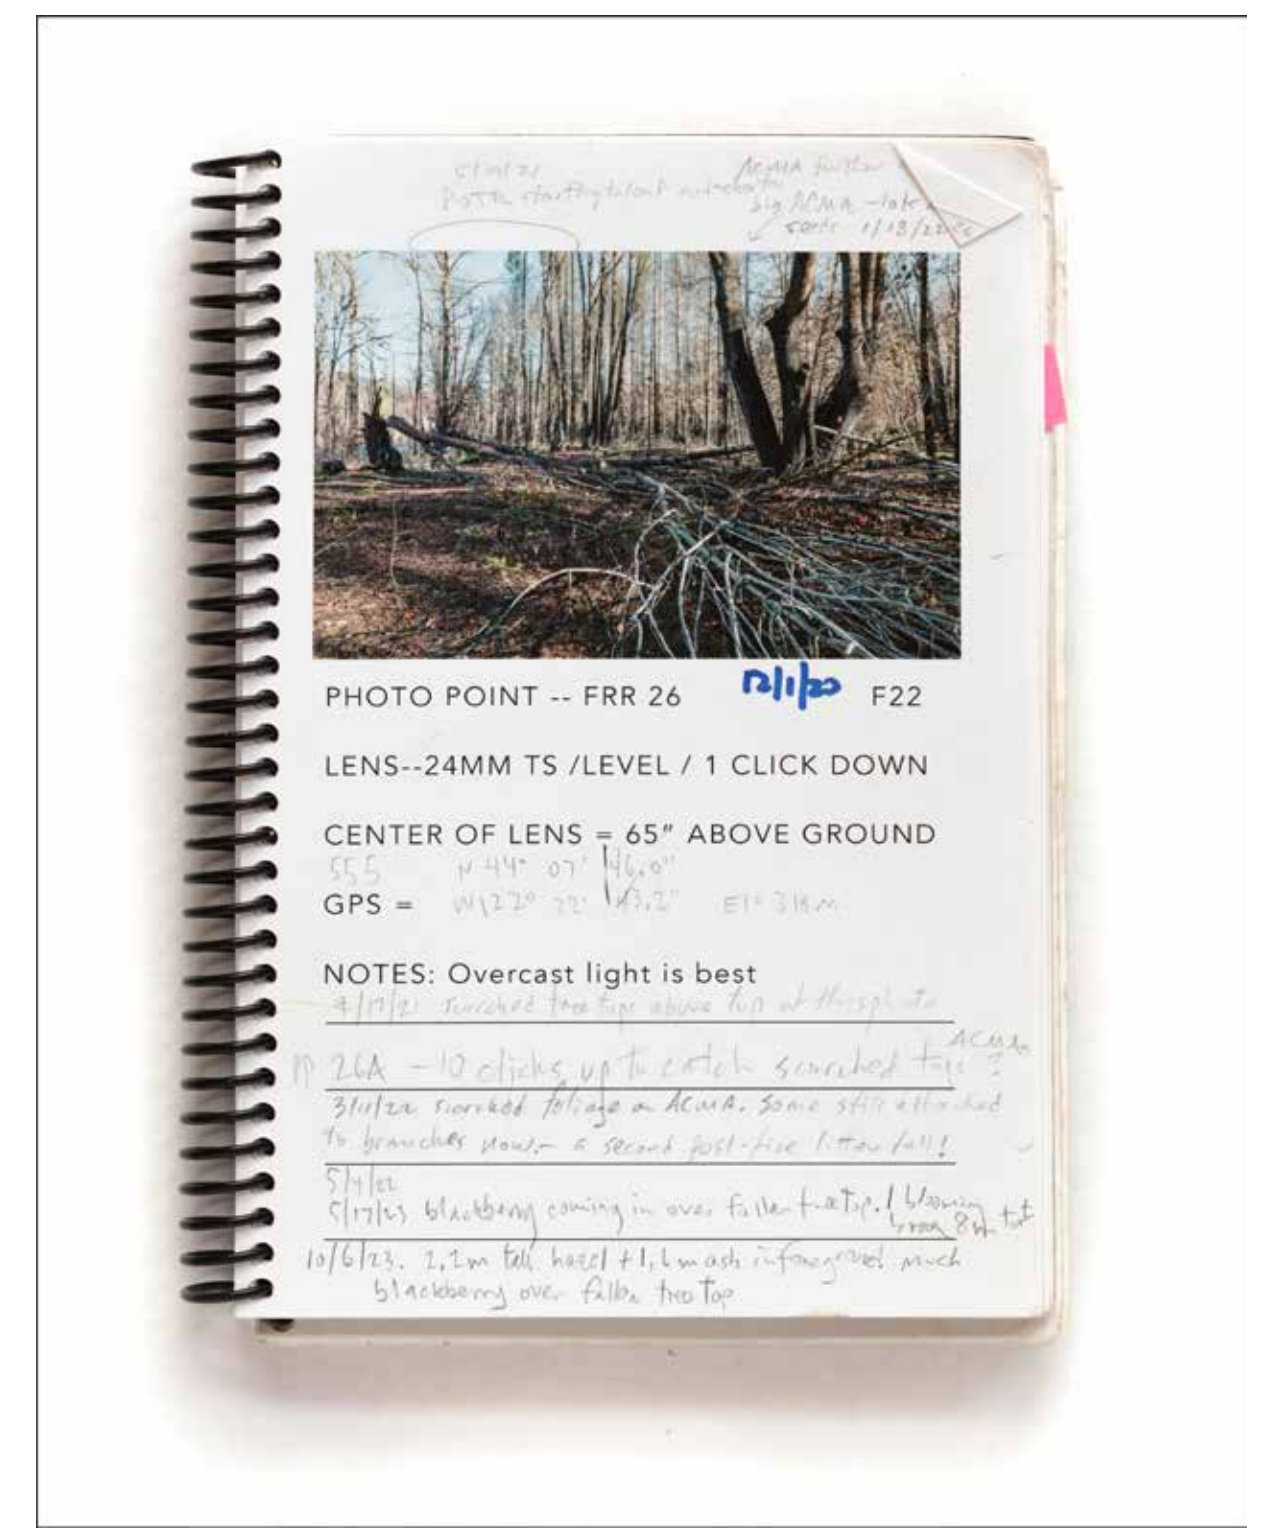 ACMA
big ACMA - late
seeds 1/13/22
PHOTO POINT -- FRR 26 12/1/20 F22
LENS--24MM TS /LEVEL / 1 CLICK DOWN
CENTER OF LENS = 65" ABOVE GROUND
555 N 44° 07' 46.0"
GPS = W122° 22' 43.2" El= 318m
NOTES: Overcast light is best
scorched tree tops above top of this photo
ACMA
PP 26A - 10 clicks up to catch scorched tops
3/11/22 scorched foliage on ACMA. Some still attached
to branches now - a second post-fire litter fall!
5/4/22
5/17/23 blackberry coming in over fallen treetop. blooming
10/6/23. 2.2m tall hazel + 1.6m ash in foreground much
blackberry over fallen tree top